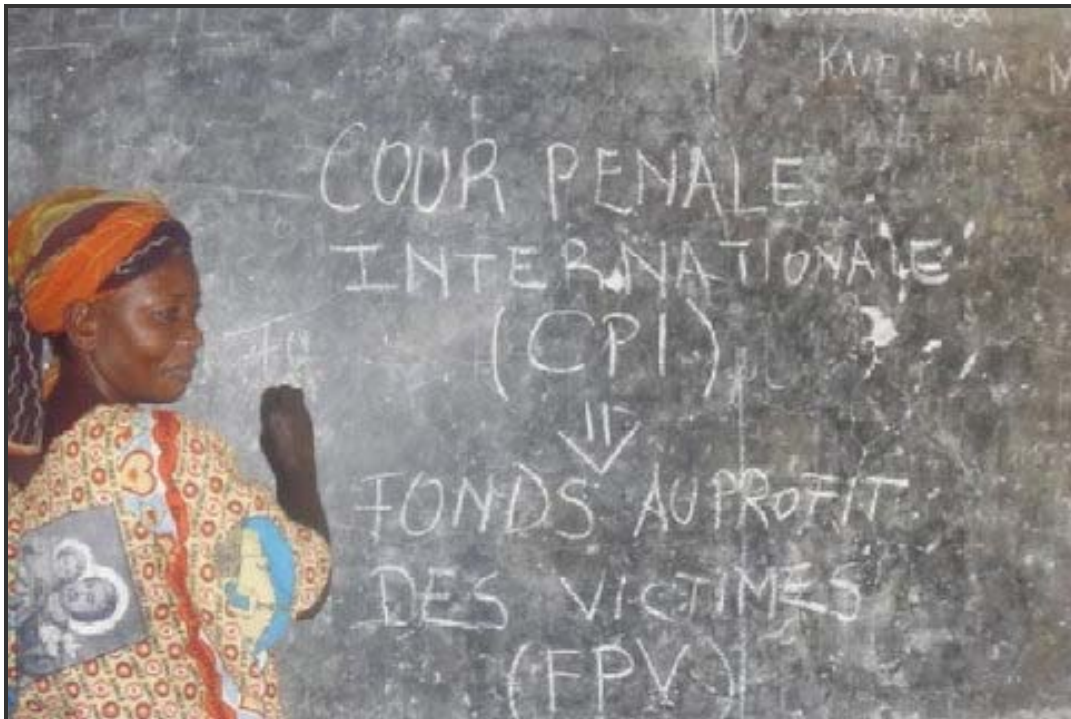 COUR PENALE
INTERNATIONALE
(CPI)
FONDS AU PROFIT
DES VICTIMES
(FPV)